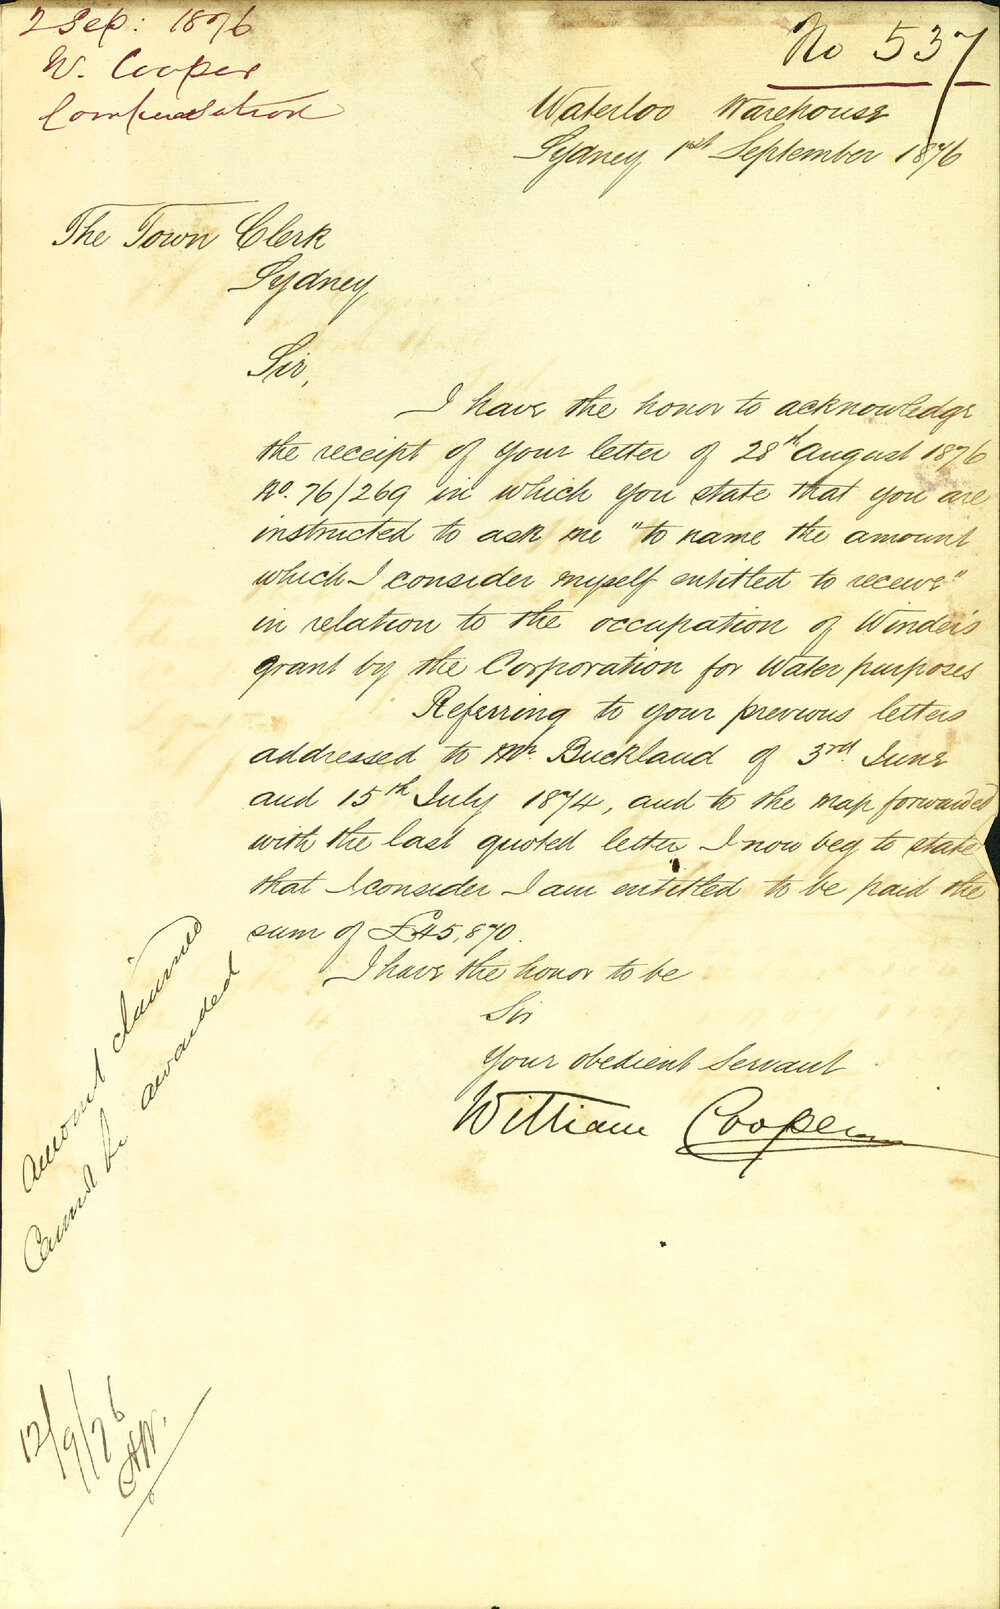 2 Sep: 1876
W. Cooper
Compensation
No 537
Waterloo Warehouse
Sydney 1st September 1876
The Town Clerk
Sydney
Sir,
I have the honor to acknowledge
the receipt of your letter of 28th August 1876
No. 76/269 in which you state that you are
instructed to ask me "to name the amount
which I consider myself entitled to receive"
in relation to the occupation of Winder's
grant by the Corporation for Water purposes
Referring to your previous letters
addressed to Mr. Buckland of 3rd. June
and 15th July 1874, and to the map forwarded
with the last quoted letter I now beg to state
that I consider I am entitled to be paid the
sum of £45,870.
I have the honor to be
Sir
Your obedient Servant
William Cooper
Amount claimed
Cannot be awarded
12/9/76